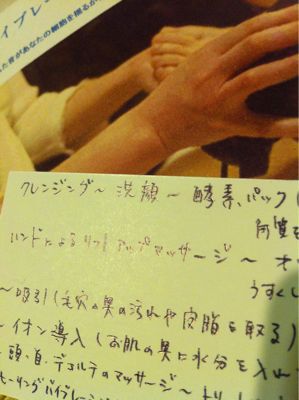 ィブレ
た音があなたの細胞を揺るが
クレンジング～洗顔～酵素パック(
角質を
ハンドによるリフトアップマッサージ～オ
うすくし
～吸引(毛穴の奥の汚れや皮脂を取る)
～イオン導入(お肌の奥に水分を入れ
・頭・首・デコルテのマッサージ～トリート
ヒーリングバイブレーシ